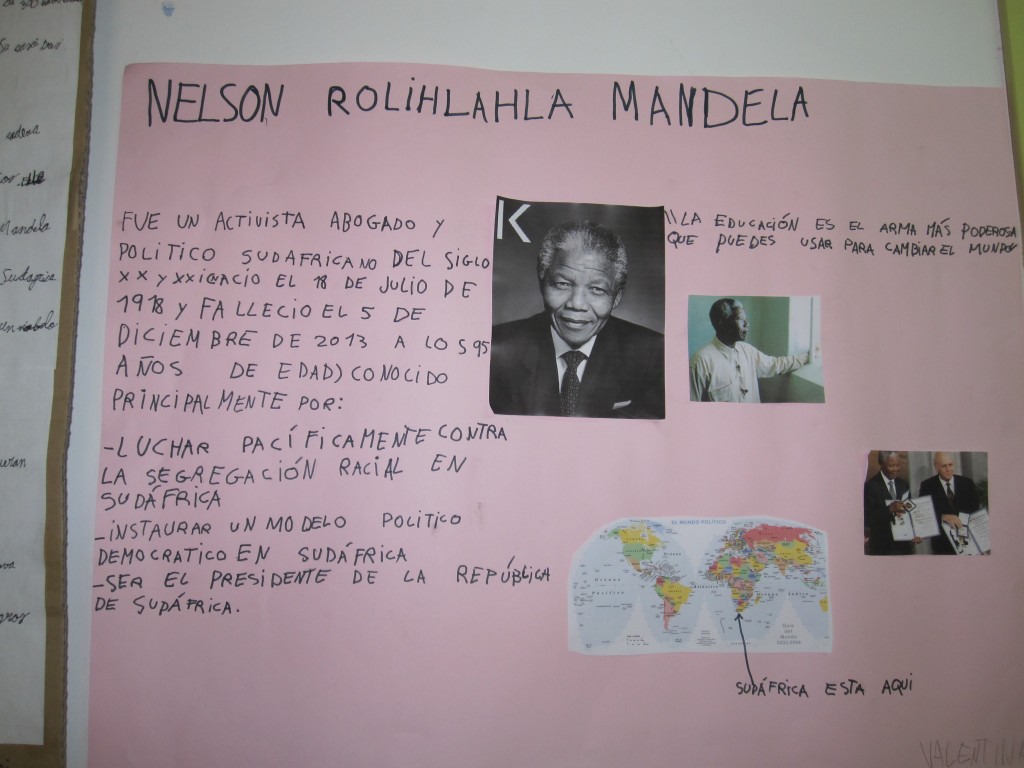 NELSON ROLIHLAHLA MANDELA
FUE UN ACTIVISTA ABOGADO Y
POLITICO SUDAFRICANO DEL SIGLO
XX Y XXI NACIO EL 18 DE JULIO DE
1918 Y FALLECIO EL 5 DE
DICIEMBRE DE 2013 A LOS 95
AÑOS DE EDAD) CONOCIDO
PRINCIPALMENTE POR:
-LUCHAR PACÍFICAMENTE CONTRA
LA SEGREGACIÓN RACIAL EN
SUDÁFRICA
-INSTAURAR UN MODELO POLITICO
DEMOCRATICO EN SUDÁFRICA
-SER EL PRESIDENTE DE LA REPÚBLICA
DE SUDÁFRICA.
K
"LA EDUCACIÓN ES EL ARMA MÁS PODEROSA
QUE PUEDES USAR PARA CAMBIAR EL MUNDO"
EL MUNDO POLÍTICO
Océano
Pacífico
SUDÁFRICA ESTA AQUI
VALENTINA
Mandela